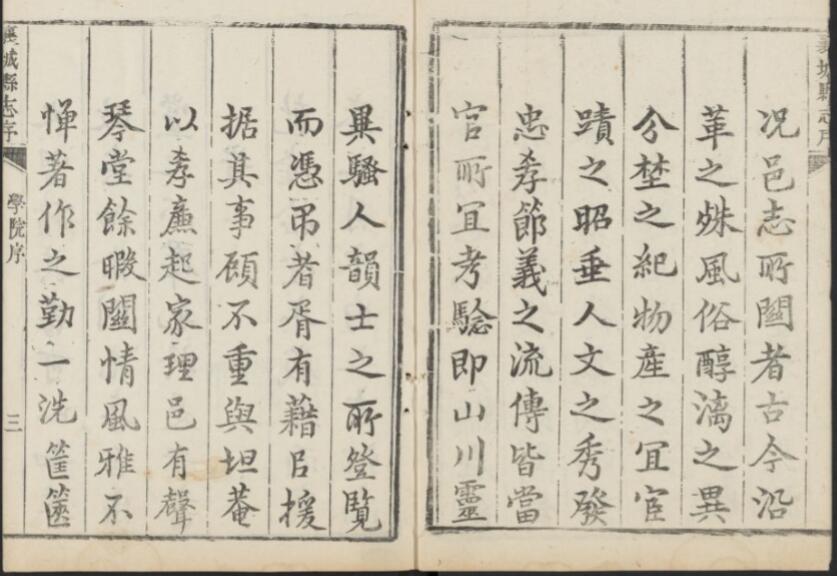 襄城縣志序
况邑志所關者古今沿
革之殊風俗醇漓之異
分埜之紀物產之冝宦
蹟之昭垂人文之秀發
忠孝節義之流傳皆當
官所冝考騐即山川靈
異騷人韻士之所登覽
而憑吊者胥有藉㠯援
据其事顧不重與坦菴
以孝廉起家理邑有聲
琴堂餘暇關情風雅不
憚著作之勤一洗筐篋
襄城縣志序
學院序
三